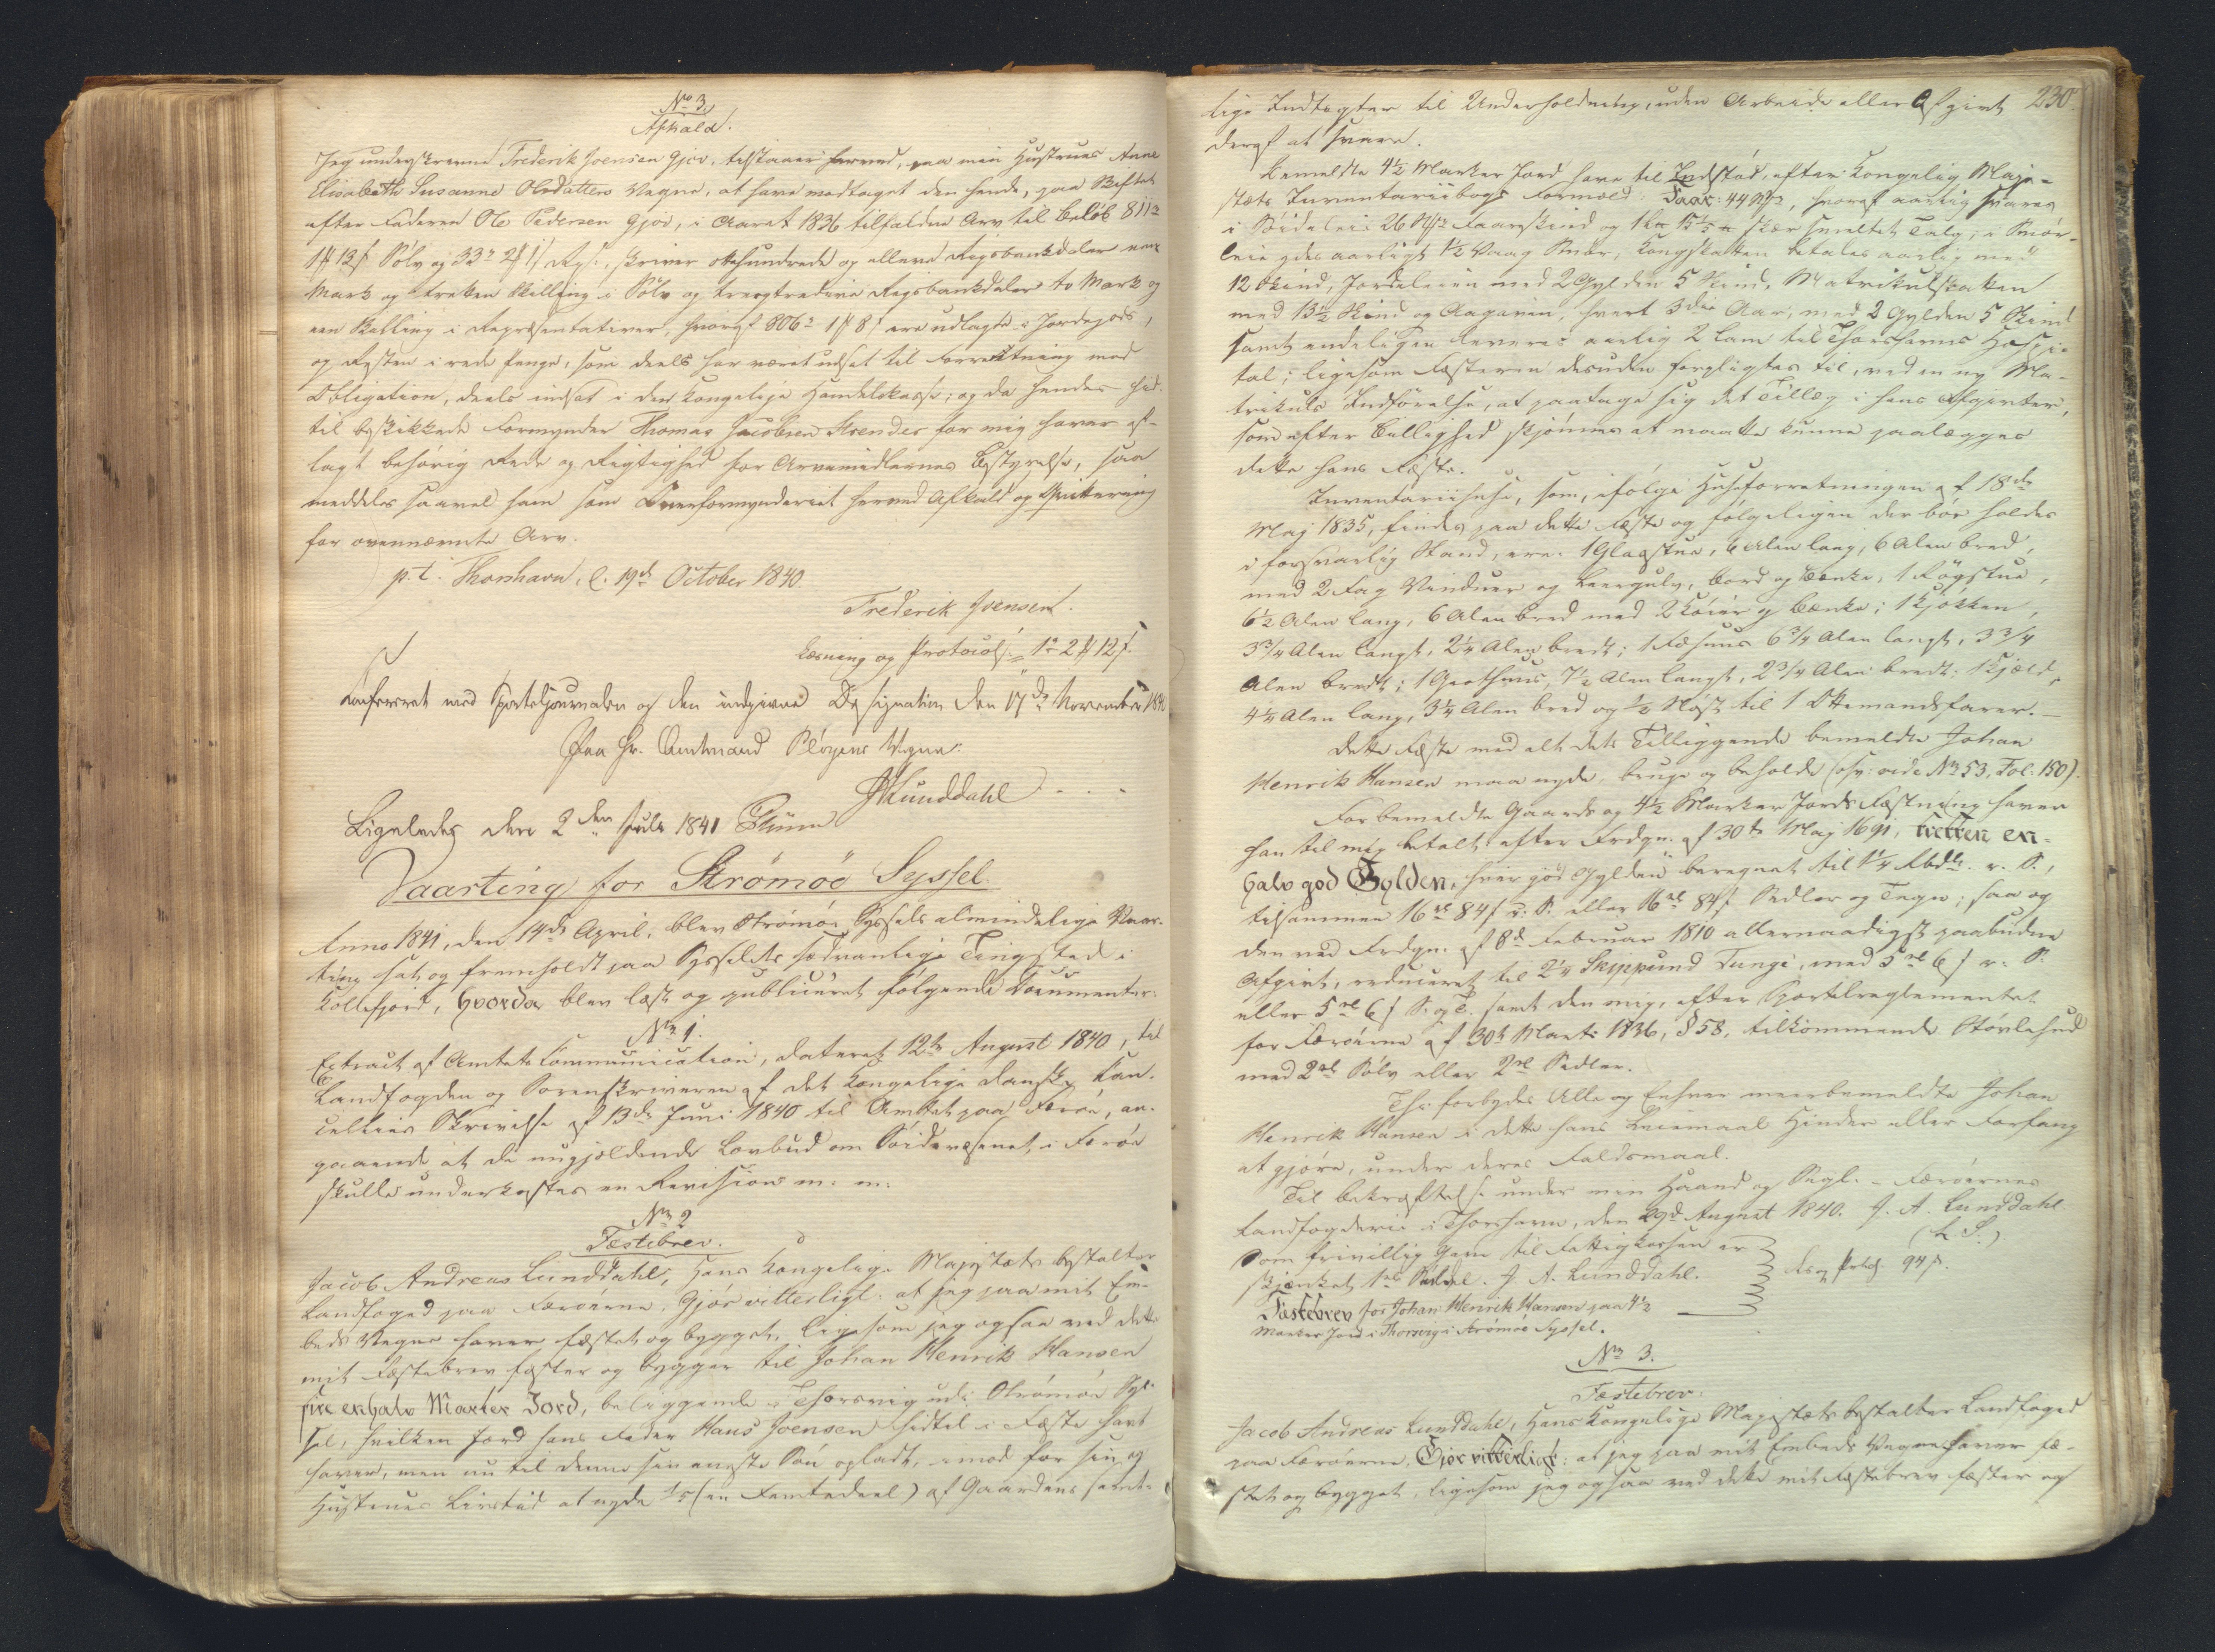 No 3.
Afkald.
Jeg underskrevne Frederik Joensen Gjov, tilstaaer herved, paa min Hustrues Anne
Elisabeth Susanne Olesdatters Vegne, at have modtaget den hende, paa Skiftet
efter Faderen Ole Pedersen Gjov, i Aaret 1836 tilfaldne Arv til Beløb 811
1 13 Sølv og 33 2 1 skriver ottehundrede og elleve Rigsbankdaler een
Mark og tretten Skilling i Sølv og tre og tredive Rigsbankdaler to Mark og
een Skilling i Repræsentativer, hvoraf 806 1 8 ere udlagte i Jordegods,
og Resten i rede Penge, som deels har været udsat til Forrentning mod
Obligation, deels indsat i den Kongelige Handelskasse; og da hendes hid-
til beskikkede Formynder Thomas Jacobsen for mig haver af-
lagt behørig Rede og Rigtighed for Arvemidlernes Bestyrelse, saa
meddeles saavel ham som Overformynderiet herved Afkald og Qvittering
for ovennævnte Arv.
p. t. Thorshavn, d. 19d October 1840.
Frederik Joensen.
Læsning og Protocols. 1 2 12
Confereret med Sporteljournalen og den indgivne Designation den 17de November 1840
Paa Hr. Amtmand Pløyens Vegne:
Lunddahl
Ligeledes den 2den Juli 1841
Vaarting for Strømøe Syssel.
Anno 1841, den 14de April, blev Strømøe Syssels almindelige Vaar-
ting sat og fremholdt paa Sysselets sædvanlige Tingsted i
Kollefjord, hvorda blev læst og publiceret følgende Documenter:
No 1.
Extract af Amtets Communication, dateret 12te August 1840, til
Landfogden og Sorenskriveren af det Kongelige danske Can-
cellies Skrivelse af 13de Juni 1840 til Amtet paa Færøe, an-
gaaende at de nugjeldende Lovbud om i Færøe
skulle underkastes en Revision m. m.
No 2
Fæstebrev.
Jacob Andreas Lunddahl, Hans Kongelige Majestæts bestalter
Landfoged paa Færøerne, Gjør vitterligt: at jeg paa mit Em-
beds Vegne haver fæstet og bygget, ligesom jeg ogsaa ved dette
mit Fæstebrev fæster og bygger til Johan Henrik Hansen
fire en halv Marker Jord, beliggende i Thorsvig udi Strømøe Sys-
sel, hvilken Jord hans Fader Hans Joensen hidtil i Fæste havt
haver, men nu til denne sin ældste Søn opladt, imod for sin og
Hustrues Livstid at nyde 1/5 (en Femtedeel) af Gaardens samt-
lige Indtægter til Underholdning, uden Arbeide eller Afgivt 230.
deraf at svare.
Bemeldte 4½ Marker Jord have til Indstød, efter Kongelig Maje-
stæts Inventariibogs Formæld: Faar: 44 , hvoraf aarlig svares
i Søideleie 26 Faarskind og 1 15 skjær smeltet Talg, i Smør-
leie ydes aarligt 1½ Vaag Smør; Kongskatten betales aarlig med
12 Skind, Jordeleien med 2 Gylden 5 Skind, Matrikulskatten
med 13½ Skind og , hvert 3die Aar, med 2 Gylden 5 Skind
samt endeligen leveres aarlig 2 Lam til Thorshavns Hospi-
tal; ligesom Fæsteren desuden forpligtes til, ved en ny Ma-
trikuls Indførelse, at paatage sig det Tillæg i hans Afgivter,
som efter Billighed skjønnes at maatte kunne paalægges
dette hans Fæste.
Inventariihuse, som, ifølge Huseforretningen af 18de
Maj 1835, findes paa dette Fæste og følgeligen der bør holdes
i forsvarlig Stand, ere: 1 Glasstue, 6 Alen lang, 6 Alen bred,
med 2 Fag Vinduer og Leergulv, Bord og Bænke; 1 Røgstue,
6½ Alen lang, 6 Alen bred med 2 Køier og Bænke; 1 Kjøkken,
3¾ Alen langt, 2¼ Alen bredt; 1 Fæhuus 6¾ Alen langt, 3¾
Alen bredt; 1 Groothuus, 7½ Alen langt, 2¾ Alen bredt; 1 Kjæld,
4¼ Alen lang, 3¼ Alen bred og ½ Nøst til 1 Ottemandsfarer.
Dette Fæste med alt dets Tilliggende bemeldte Johan
Henrik Hansen maa nyde, bruge og beholde (osv: vide No 53, Fol: 150).
For bemeldte Gaards og 4½ Marker Jords Fæstning haver
han til mig betalt efter Frdgn. af 30te Maj 1691, tretten en
halv god Gylden, hver god Gylden beregnet til 1¼ Rbdlr. r. S.,
tilsammen 16 84 r. S. eller 16 84 Sedler og Tegn; saa og
den ved Frdgn. af 8d Februar 1810 allernaadigst paabudne
Afgivt, reduceret til 2¼ Skippund Tunge, med 5 6 r. S.
eller 5 6 S. og T. samt den mig, efter Sportelreglementet
for Færøerne af 30te Marts 1836, § 58, tilkommende Støvlehud
med 2 Sølv eller 2 Sedler.
Thi forbydes Alle og Enhver meerbemeldte Johan
Henrik Hansen i dette hans Leiemaal Hinder eller Forfang
at gjøre, under deres Faldsmaal.
Til Bekræftelse under min Haand og Segl. – Færøernes
Landfogderie i Thorshavn, den 29d August 1840. J. A. Lunddahl.
(L. S.)
Som frivillig Gave til Fattigkassen er
skjænket 1 Sedel. J. A. Lunddahl.
94
Fæstebrev for Johan Henrik Hansen paa 4½
Marker Jord i Thorsvig i Strømøe Syssel.
No 3.
Fæstebrev.
Jacob Andreas Lunddahl, Hans Kongelige Majestæts bestalter Landfoged
paa Færøerne, Gjør vitterligt: at jeg paa mit Embeds Vegne haver fæ-
stet og bygget, ligesom jeg ogsaa ved dette mit Fæstebrev fæster og